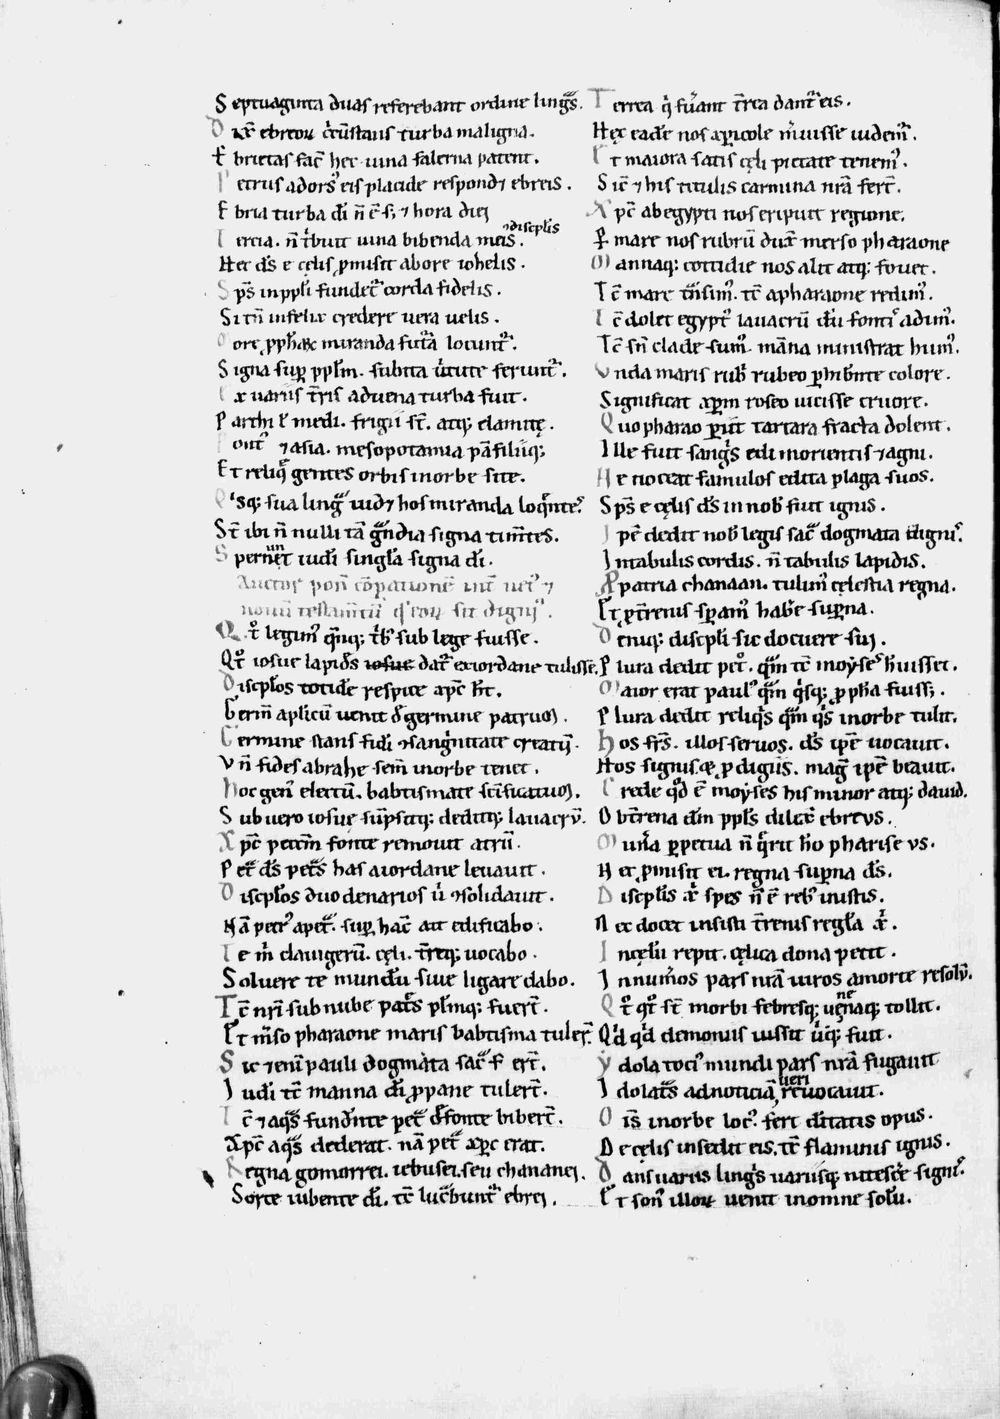 Septuaginta duas referebant ordine ling̅s.
Dix̅ ebreou̅ c̅u̅stans turba maligna.
Ebrietas fac̅ hec uina falerna patent.
Petrus adors᷒ eis placide respond⁊ ebreis.
Ebria turba d̅i n̅ e̅ s; ⁊ hora diei
Tercia. n̅ t̅buit uina bibenda meis. ⁊discip̅lis
Hec d̅s e cęlis p̱misit ab ore iohelis.
Sp̅s in pp̅li fundet᷒ corda fidelis.
Si tn̅ infelix credere uera uelis.
More p̱ph̅ae miranda fut̅a locunt᷒.
Signa sup̱ pp̅lm. subita u̅tute ferunt᷒.
Ex uariis t̅ris aduena turba fuit.
Parthi ł medi. frigii st̅. atq; elamitę.
Pont᷒ ⁊ asia. mesopotamia pa̅filiiq;
Et reliq̅ gentes orbis in orbe site.
Q'sq; sua ling̅ uid⁊ hos miranda loq̅ntes.
St̅ ibi n̅ nulli ta̅ g̅ndia signa tim̅tes.
Spernun̅t iudi̅ singl̅a signa d̅i.
Auctor pon̅ co̅paratione̅ int̅ uet᷒ ⁊
nouu̅ testam̅tu̅ q̅ eou̅ sit digni᷒.
Qt̅ legim᷒ q̅nq; t̅b᷒ sub lege fuisse.
Qt̅ iosue lapid̅s iosue dat᷒ ex iordane tulisse.
Discip̅los totide̅ respice xp̅c h̅t.
Germ̅ ap̅licu̅ uenit d̅ germine patruoꝝ.
Germine stans fidi̅ ⁊sang̅nitate creatiꝝ.
Vn̅ fides abrahe sem̅ in orbe tenet.
Hoc gen᷒ electu̅. babtismate sc̅ificatuoꝝ.
Sub uero iosue su̅psitq; deditq; lauacru̅.
Xp̅c pet̅m fonte remouit atru̅.
Pet̅ d̅s pet̅s has a iordane leuauit.
Discip̅los duo denarios u̅ ⁊solidauit.
Na̅ petr᷒ a pet̅. sup̱ hac̅ ait edificabo.
Te m̅ clauigeru̅. cęli. t̅req; uocabo.
Soluere te mundu̅ siue ligare dabo.
Tc̅ nr̅i sub nube pat̅s pl̅nq; fuer̅t.
Et m̅so pharaone maris babtisma tuler̅t.
Sic ⁊ eni̅ pauli dogmata sac̅ f̅ er̅t.
Iudi̅ tc̅ manna d̅i p̱ pane tuler̅t.
Tc̅ ⁊ aq̅s fund̅nte pet̅ d̅ fonte biber̅t.
Xp̅c aq̅s dederat. na̅ pet̅ xp̅c erat.
Regna gomorrei. iebusei. seu chananei.
Sorte iubente d̅i. tc̅ luc̅bunt᷒ ebrei.
Terrea q̅ fu̅ant t̅rea dant᷒ eis.
Hęc eade̅ nos xp̅icole m̅uisse uidem᷒.
Et maiora satis cęli pietate tenem᷒.
Sic̅ ⁊ his titulis carmina nr̅a fer̅t.
Xp̅c ab egypti nos eripuit regione.
Per mare nos rubru̅ dux̅ merso pharaone
Mannaq; cottidie nos alit atq; fouet.
Tc̅ mare t̅nsim᷒. tc̅ a pharaone redim᷒.
Tc̅ dolet egypt᷒ lauacru̅ du̅ fonti᷒ adim᷒.
Tc̅ sn̅ clade sum᷒. ma̅na ministrat hum᷒.
Vnda maris rub̅ rubeo p̱hib̅nte colore.
Significat xp̅m roseo uicisse cruore.
Quo pharao p̱iit tartara fracta dolent.
Ille fuit sang᷒s edi morientis ⁊ agni.
Ne noceat famulos edita plaga suos.
Sp̅s e cęlis d̅s in nob̅ fuit ignis.
Ip̅e dedit nob̅ legis sac̅ dogmata digni᷒.
In tabulis cordis. n̅ tabulis lapidis.
Xp̅ patria chanaan. tulim᷒ cęlestia regna.
Et p̱t̅renis sp̱am᷒ hab̅e sup̱na.
Deniq; discip̅li sic docuere sui.
Plura dedit pet᷒. q̅m tc̅ moyses᷒ h̅uisset.
Maior erat paul᷒ q̅m q̅sq; p̱ph̅a fuiss;.
Plura dedit reliq̅s q̅m q̅s in orbe tulit.
Hos fr̅s. illos seruos. d̅s ip̅e uocauit.
Hos signisq; p̱digiis. mag̅ ip̅e beauit.
Crede q̅d e̅ moyses his minor atq; dauid.
Obt̅rena d̅m pp̅ls dilex̅ ebreus.
Mun̅a p̱petua n̅ q̅rit h̅o phariseus.
Nec p̱misit ei. regna sup̱na d̅s.
Discip̅lis x̅r spes n̅ e̅ reb᷒ iniustis.
Nec docet insisti t̅renis regl̅a x̅r.
In cęlu̅ repit. cęlica dona petit.
Innum̅os pars nr̅a uiros a morte resolu̅.
Qt̅ qt̅ st̅ morbi febresq; uenenaq; tollit.
Q'd q̅d demoniis iussit u̅q; fuit.
Ydola toci᷒ mundi pars nr̅a fugauit
Idolat̅s ad noticia̅ ueri reuocauit.
Ois̅ in orbe loc᷒. fert d̅itatis opus.
De cęlis insedit eis. tc̅ flaminis ignis.
Dans uariis ling̅s uariisq; nitesc̅e signi᷒.
Et son᷒ illou̅ uenit in omne solu̅.